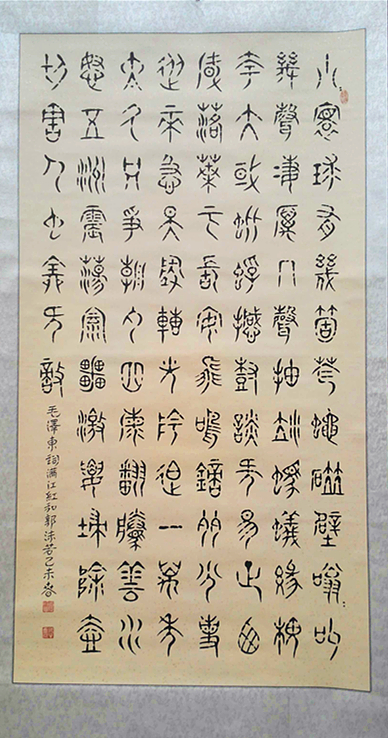 小寰球有幾箇蒼蠅碰壁嗡嗡叫
幾聲凄厲几聲抽泣螞蟻緣槐
夸大國蚍蜉撼樹談何易正西
風落葉下長安飛鳴鏑多少事
從來急天地轉光陰迫一萬年
太久只爭朝夕四海翻騰雲水
怒五洲震蕩風雷激要掃除壹
切害人虫全无敵
毛澤東詞滿江紅和郭沫若己未春